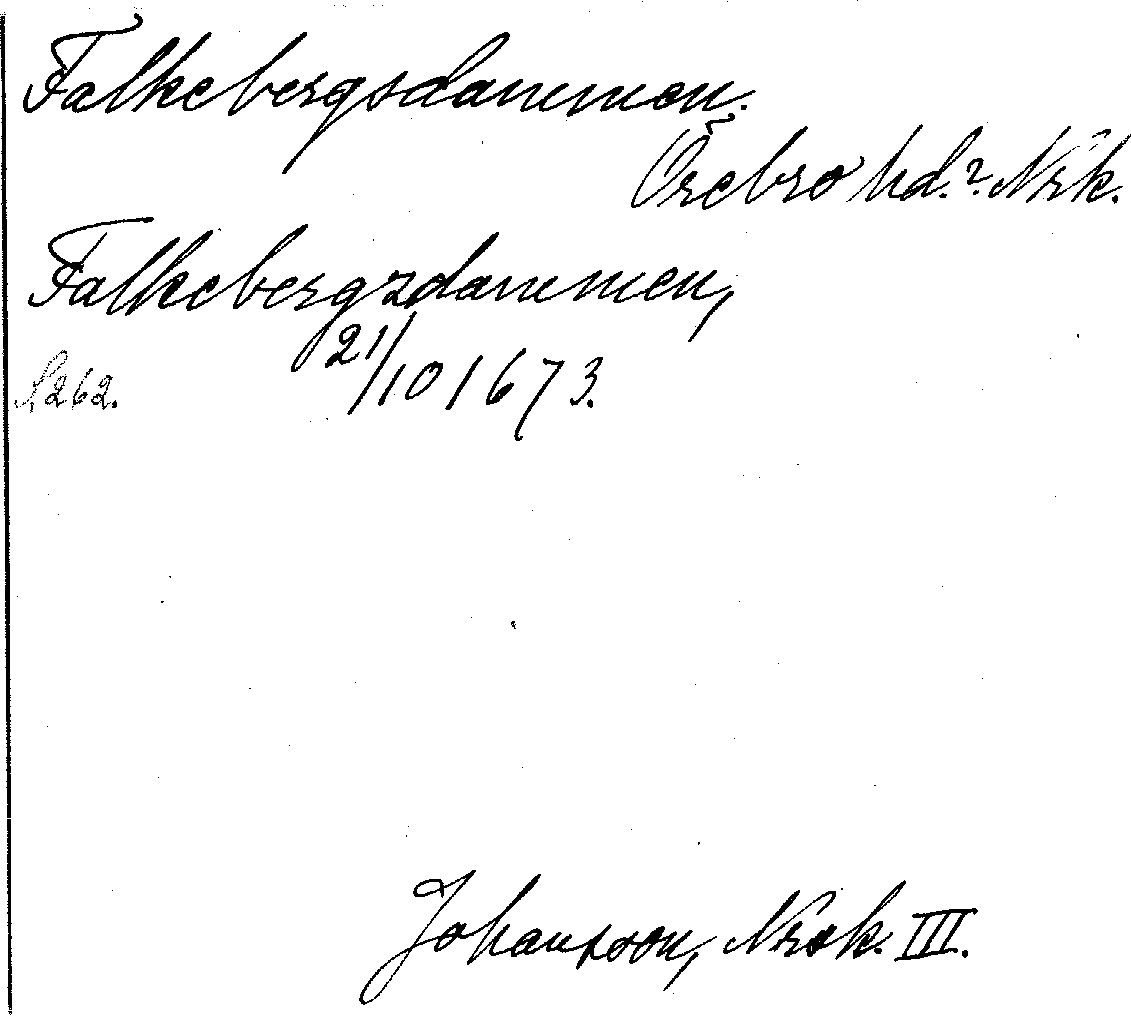 Falkebergsdammen.
Örebro hd.? Nrk.
Falkebergzdammen,
S. 262. 21/10 1673.
Johansson, Nrk. III.